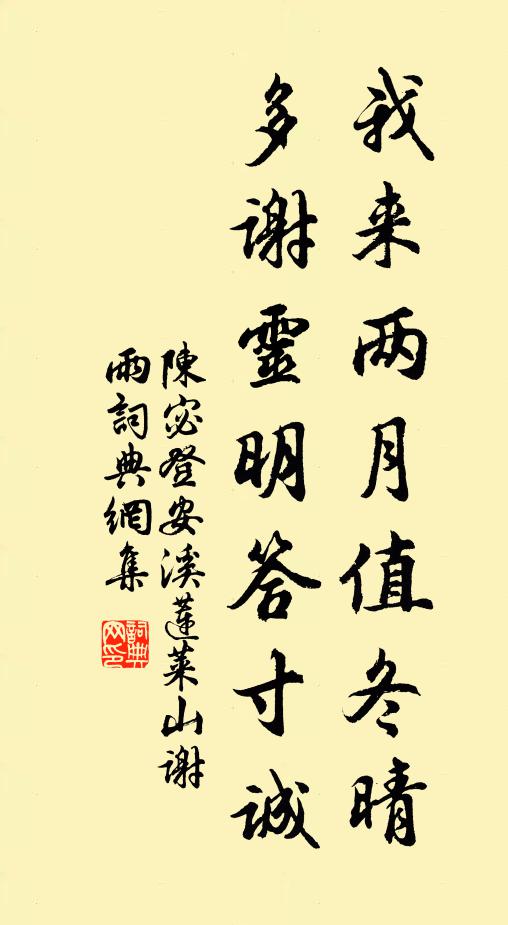 我来两月值冬晴
多谢靈明答寸诚
陳宓登安溪蓬莱山谢
雨詞典網集
詞典网印